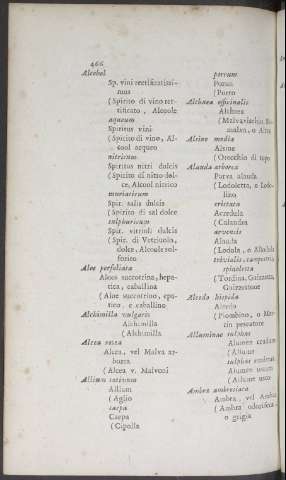 466
Alcohol
Sp. vini rectificatissi-
mus
(Spirito di vino ret-
tificato, Alcoole
aqueum
Spiritus vini
(Spirito di vino, Al-
cool acqueo
nitricum
Spiritus nitri dulcis
(Spirito di nitro dol-
ce, Alcool nitrico
muriaticum
Spir. salis dulcis
(Spirito di sal dolce
sulphuricum
Spir. vitrioli dulcis
(Spir. di Vetriuolo,
dolce, Alcoole sol-
forico
Aloe perfoliata
Aloes succotrina, hepa-
tica, caballina
(Aloe succotrino, epa-
tico, e caballino
Alchimilla vulgaris
Alchimilla
(Alchimilla
Alcea rosea
Alcea, vel Malva ar-
borea
(Alcea v. Malvoni
Allium sativum
Allium
(Aglio
caepa
Caepa
(Cipolla
porrum
Porrus
(Porro
Althaea officinalis
Althaea
(Malvavischio
malva, o Altea
Alsine media
Alsine
(Orecchio di topo
Alauda arborea
Parva alauda
(Lodoletta, e Lodo-
lino
cristata
Acredula
(Calandra
arvensis
Alauda
(Lodola, o Allodola
trivialis, campestris
spinoletta
(Tordina, Guizzetta,
Guizzettone
Alcedo hispida
Alcedo
(Piombino, o Mar-
tin pescatore
Alluminae sulphas
Alumen crudum
(Allume
sulphas
Alumen ustum
(Allume usto
Ambra ambrosiaca
Ambra, vel Ambra
(Ambra odorifera
o grigia